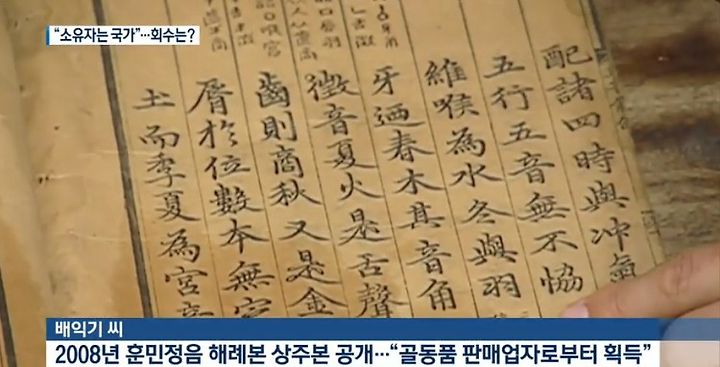 "소유자는 국가"…회수는?
配諸四時與冲氣
五行五音無不協
維喉為水冬與羽
牙迺春木其音角
徵音夏火是舌聲
齒則商秋又是金
脣於位數本無定
土而季夏為宮音
배익기 씨
2008년 훈민정음 해례본 상주본 공개…"골동품 판매업자로부터 획득"